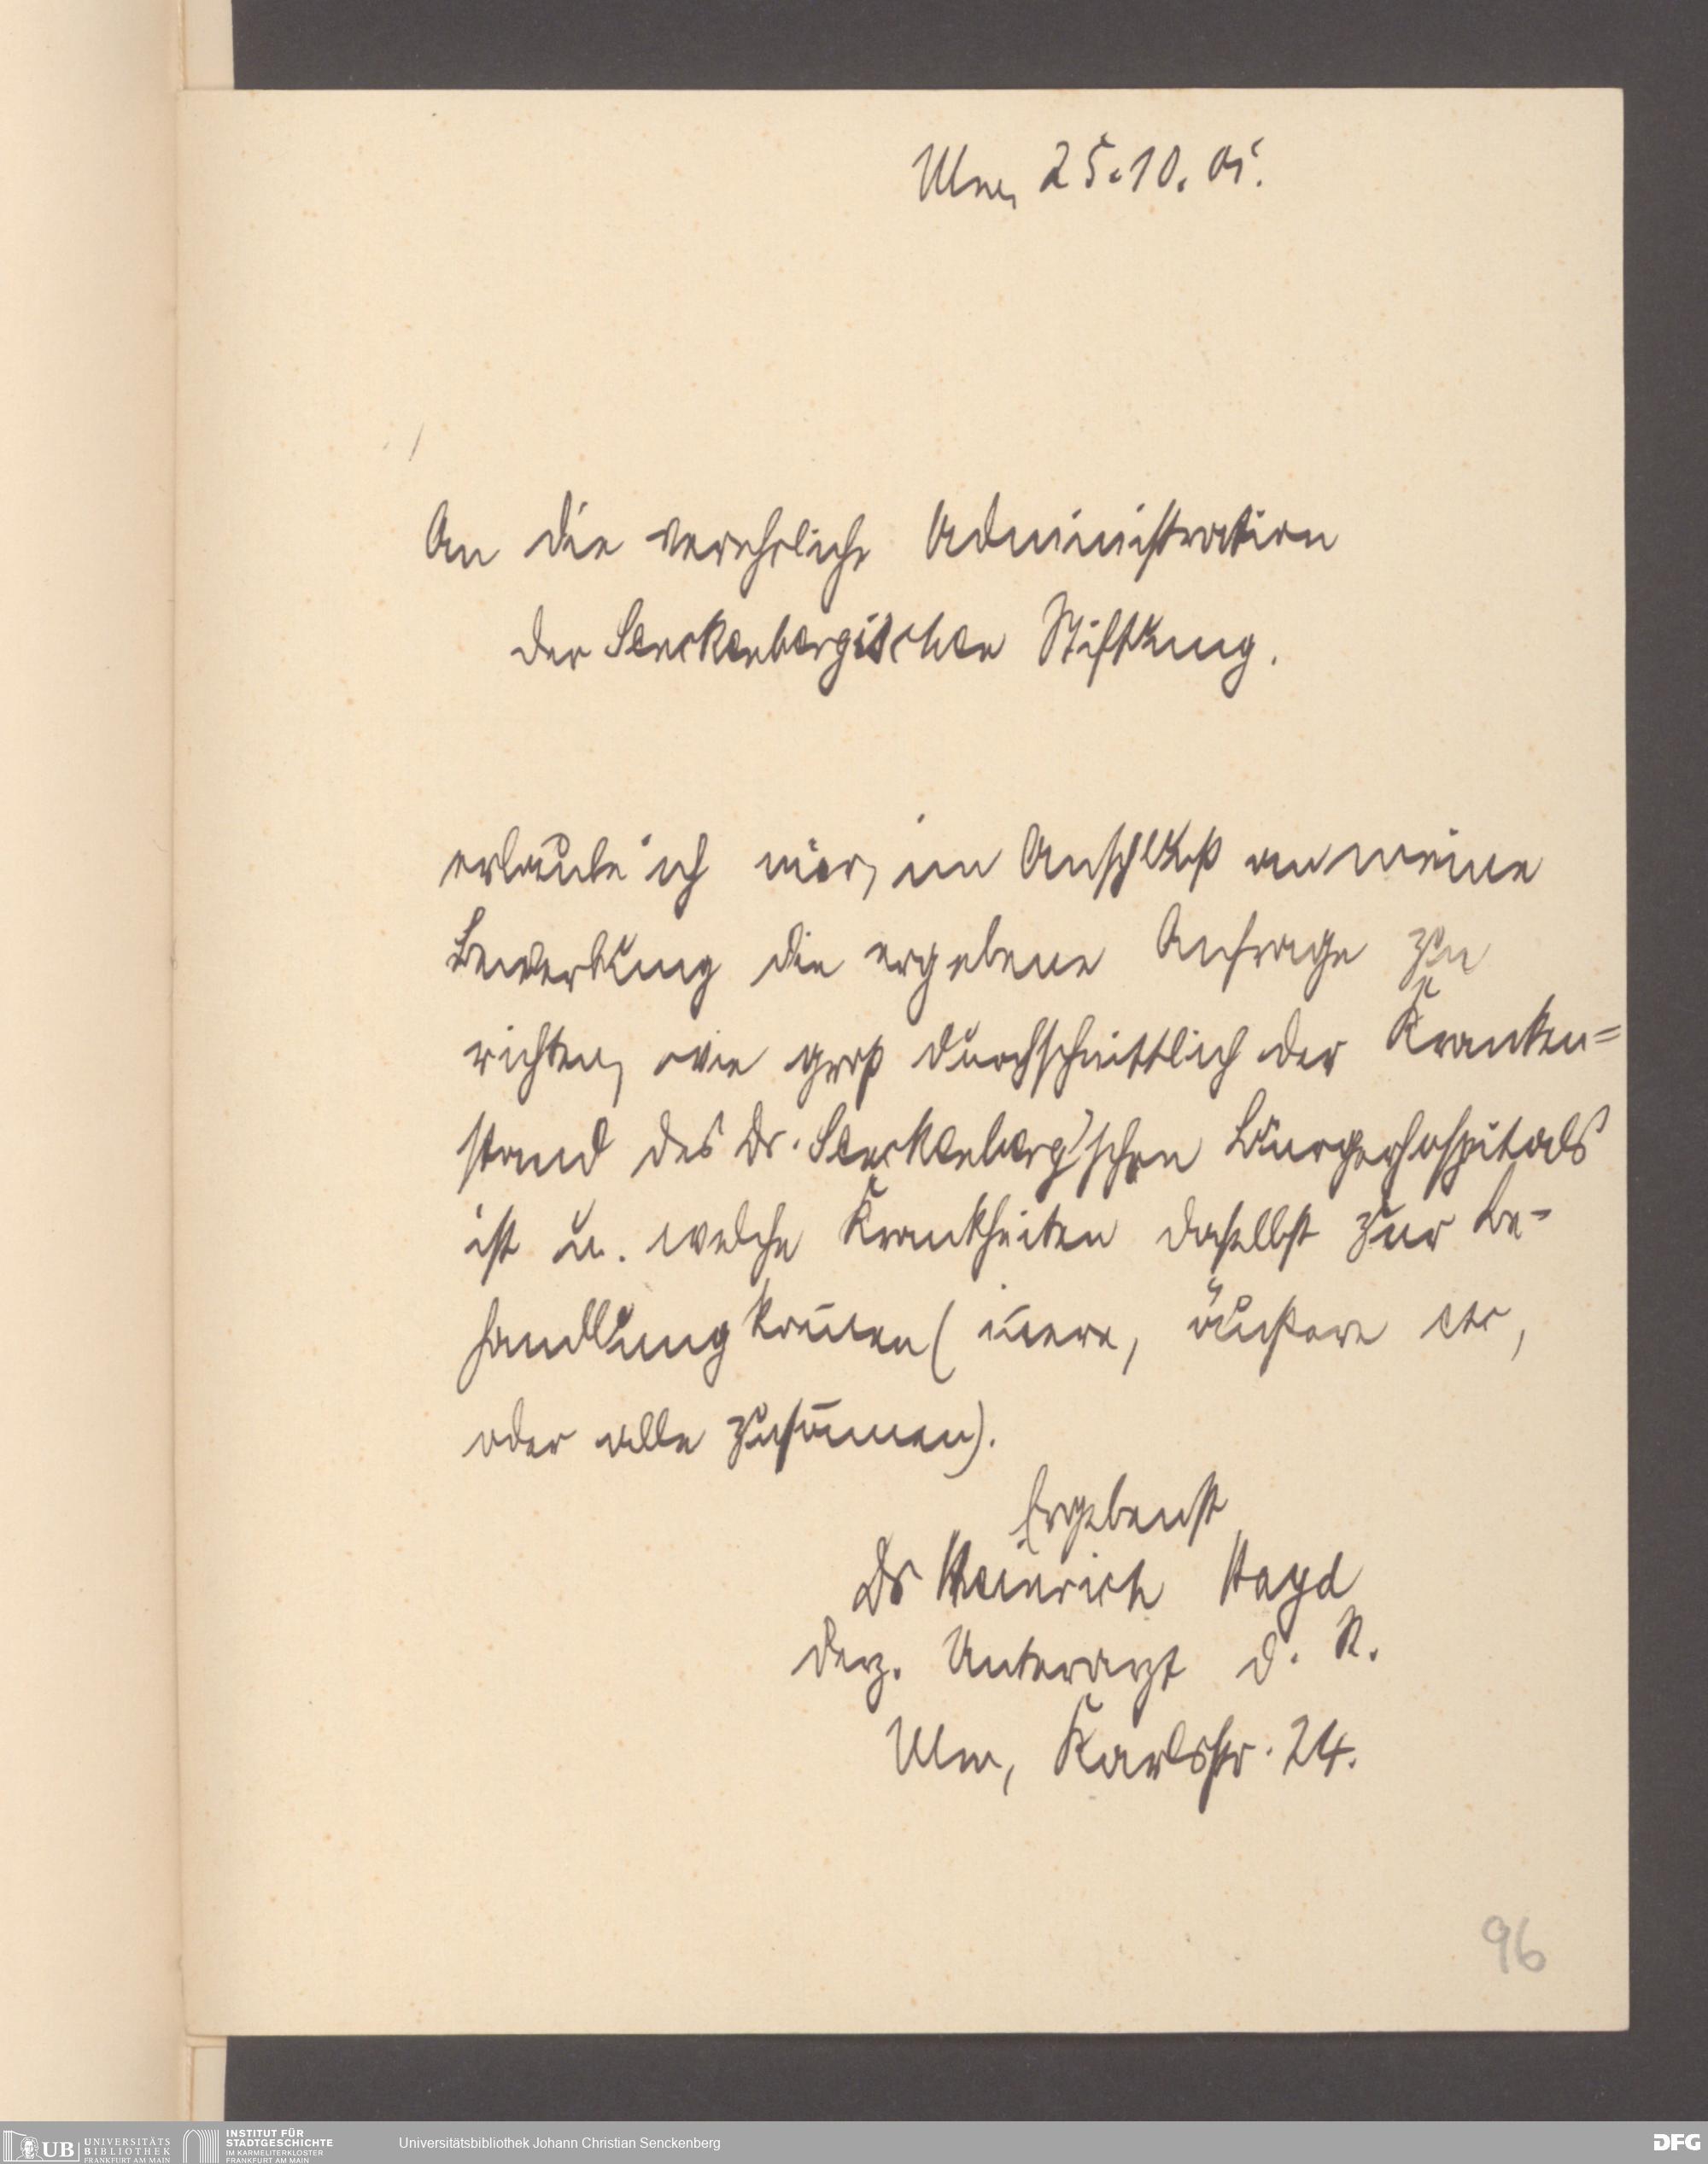 Ulm, 25.10.05.
An die verehrliche Administration
der Senckenbergischen Stiftung.
erlaube ich mir, im Anschluß an meine
Bewerbung die ergebene Anfrage zu
richten, wie groß durchschnittlich der Kranken=
stand des Dr. Senckenberg'schen Bürgerhospitals
ist u. welche Krankheiten daselbst zur Be-
handlung kom̄en (in̄ere, äußere etc,
oder alle zusam̄en).
Ergebenst
Dr Heinrich Hayd
derz. Unterarzt d. R.
Ulm, Karlsstr. 24.
96
UB UNIVERSITÄTS
BIBLIOTHEK
FRANKFURT AM MAIN
INSTITUT FÜR
STADTGESCHICHTE
IM KARMELITERKLOSTER
FRANKFURT AM MAIN
Universitätsbibliothek Johann Christian Senckenberg
DFG